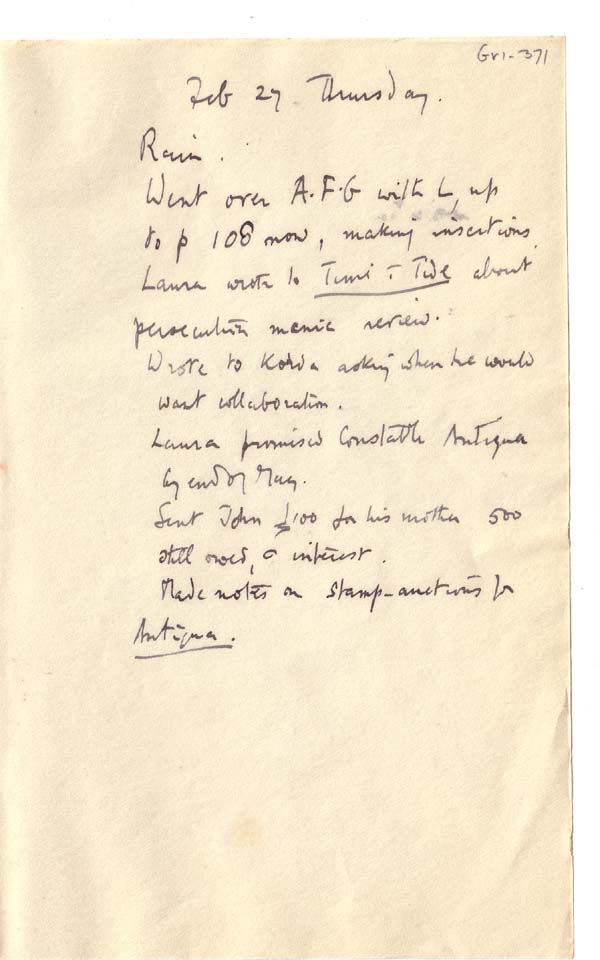 Gr1-371
Feb 27 Thursday.
Rain.
Went over A.F.G with L, up
to p 108 now, making insertions.
Laura wrote to Time & Tide about
persecution mania review.
Wrote to Korda asking when he would
want collaboration.
Laura promised Constable Antigua
by end of May.
Sent John £100 for his mother 500
still owed, & interest.
Made notes on stamp-auctions for
Antigua.